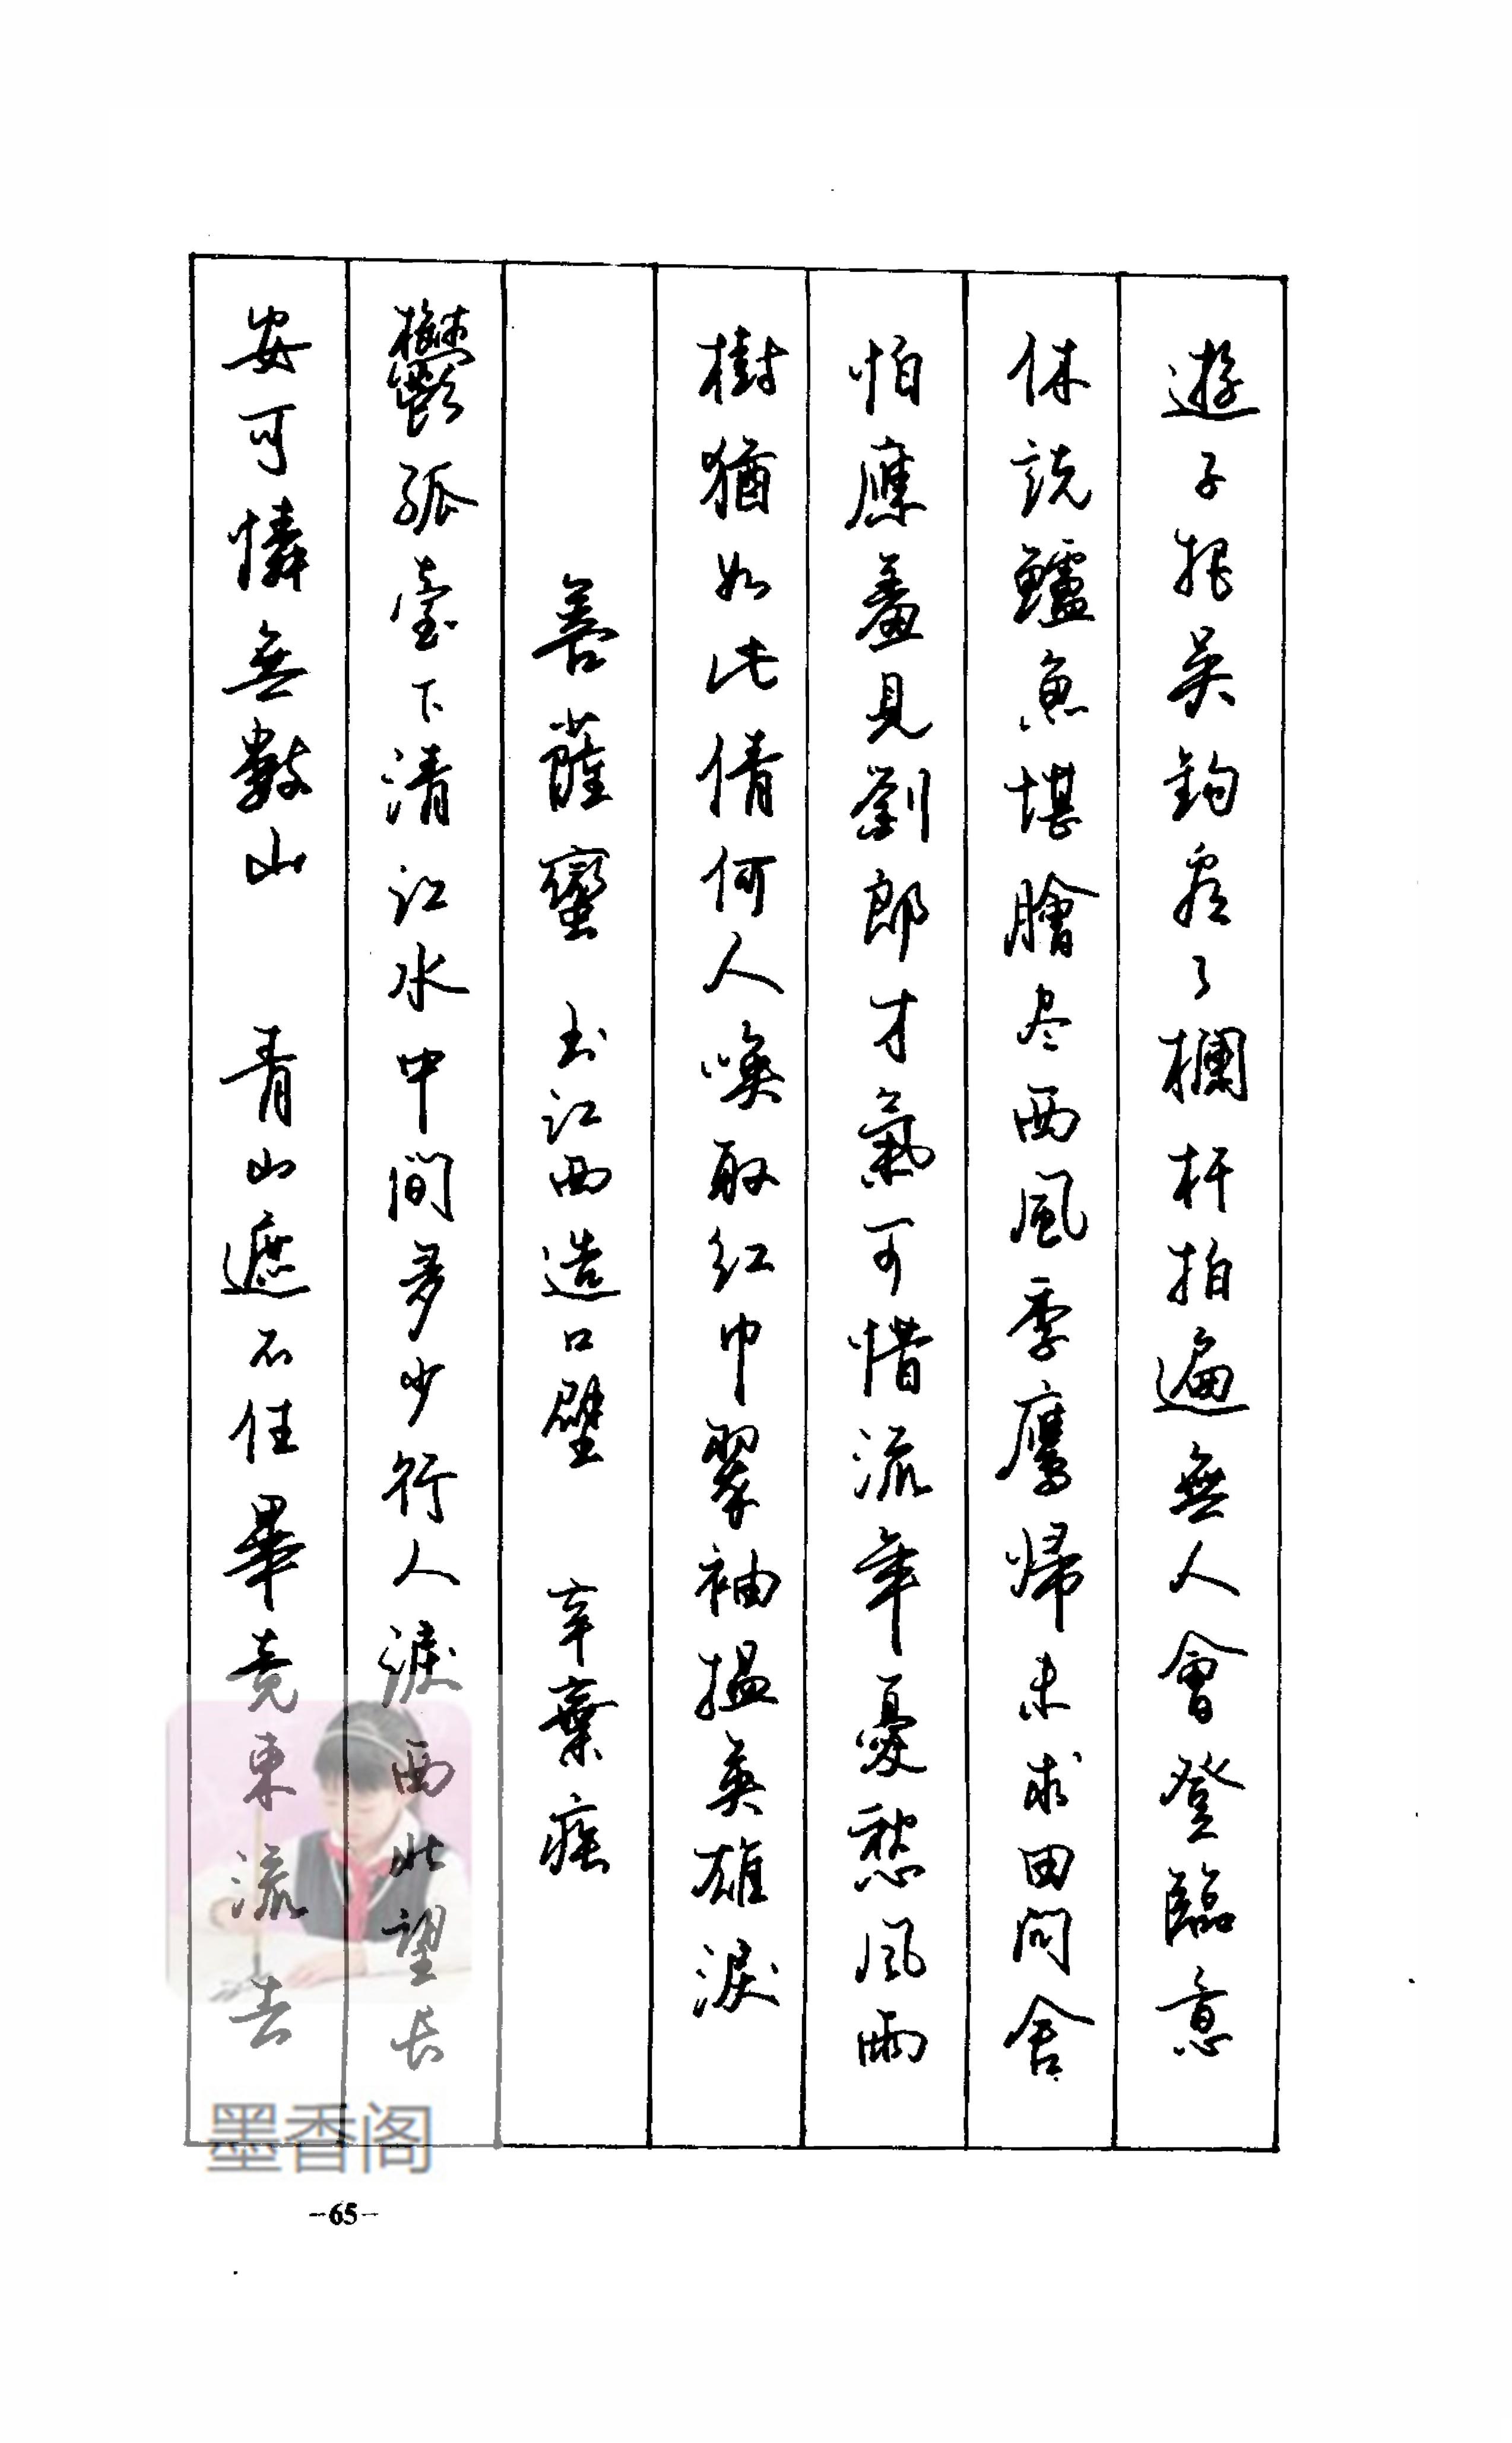 遊子把吴鈎看了欄杆拍遍無人會登臨意
休説鱸魚堪膾尽西風季鷹帰未求田問舍
怕應羞見劉郎才氣可惜流年憂愁風雨
樹猶如此倩何人喚取紅巾翠袖搵英雄淚
菩薩蠻 书江西造口壁 辛棄疾
鬱孤臺下清江水中間多少行人淚西北望長
安可憐無數山 青山遮不住畢竟東流去
墨香阁
-65-